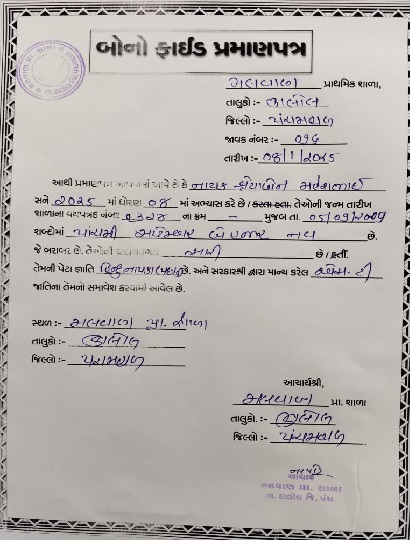 બોનો ફાઈડ પ્રમાણપત્ર
મલવાણ પ્રાથમિક શાળા,
તાલુકો :- હાલોલ
જિલ્લો :- પંચમહાલ
જાવક નંબર :- ૦૧૬
તારીખ :- ૦૪/૧/૨૦૨૫
આથી પ્રમાણપત્ર આપવામાં આવે છે કે નાયક મહેશભાઈ
સને ૨૦૨૫ માં ધોરણ ૦૪ માં અભ્યાસ કરે / કરતા હતા. તેઓની જન્મ તારીખ
શાળાના વયપત્રક નંબર ૨૩૨૪ ના ક્રમ - મુજબ તા. ૦૫/૦૧/૨૦૦૯
શબ્દોમાં પાંચમી બે હજાર નવ છે.
જે બરાબર છે. તેઓની સારી છે / હતી.
તેમની પેટા જ્ઞાતિ હિન્દુ નાયક છે. અને સરકારશ્રી દ્વારા માન્ય કરેલ એસ.ટી
જાતિના તેમનો સમાવેશ કરવામાં આવેલ છે.
સ્થળ :- મલવાણ પ્રા. શાળા
તાલુકો :- હાલોલ
જિલ્લો :- પંચમહાલ
આચાર્યશ્રી,
મલવાણ પ્રા. શાળા
તાલુકો. :- હાલોલ
જિલ્લો :- પંચમહાલ
આચાર્ય
મલવાણ પ્રા. શાળા
તા. હાલોલ જિ. પંચ.